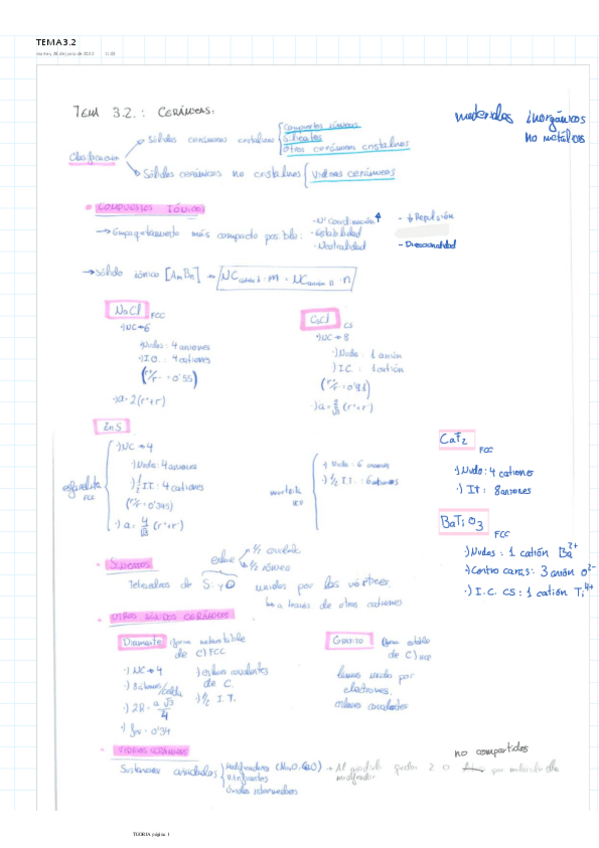 TEMA 3.2
TEMA 3.2.: CERÁMICAS.
materiales inorgánicos
no metálicos
Clasificación
Sólidos cerámicos cristalinos
Compuestos iónicos
Silicatos
Otros cerámicos cristalinos
Sólidos cerámicos no cristalinos { Vidrios cerámicos
COMPUESTOS IÓNICOS
→ Empaquetamiento más compacto posible:
- Nº Coordinación ↑
- Estabilidad
- Neutralidad
- ↓ Repulsión
- Direccionalidad
→ Sólido iónico [Am Bn] → NC catión A · m = NC anión B · n
NaCl FCC
·) NC → 6
·) Nudos: 4 aniones
·) I.O.: 4 cationes
(r⁺/r⁻ = 0'55)
·) a = 2(r⁺+r⁻)
CsCl CS
·) NC → 8
·) Nudo: 1 anión
·) I.C.: 1 catión
·) a = 2/√3 (r⁺+r⁻)
ZnS
esfalerita FCC
·) NC → 4
·) Nudo: 4 aniones
·) 1/2 I.T.: 4 cationes
·) a = 4/√3 (r⁺+r⁻)
wurtzita HCP
·) Nudo: 6 aniones
·) 1/2 I.T.: 6 cationes
CaF₂ FCC
·) Nudo: 4 cationes
·) IT: 8 aniones
BaTiO₃ FCC
·) Nudos: 1 catión Ba²⁺
·) Centro caras: 3 anión O²⁻
·) I.C. CS: 1 catión Ti⁴⁺
enlace
1/2 covalente
1/2 iónico
Tetraedros de Si y O unidos por los vértices
o a través de otros cationes
OTROS SÓLIDOS CERÁMICOS
Diamante (forma metaestable
de C) FCC
·) NC → 4
·) 8 átomos/celda
·) 2R = a√3/4
·) fv = 0'34
·) enlaces covalentes
de C.
·) 1/2 I.T.
Grafito (forma estable
de C) HCP
unidas por
electrones.
enlaces covalentes
VIDRIOS CERÁMICOS
Sustancias añadidas
Modificadores
Óxidos intermedios
no compartidos
TEORIA página 1